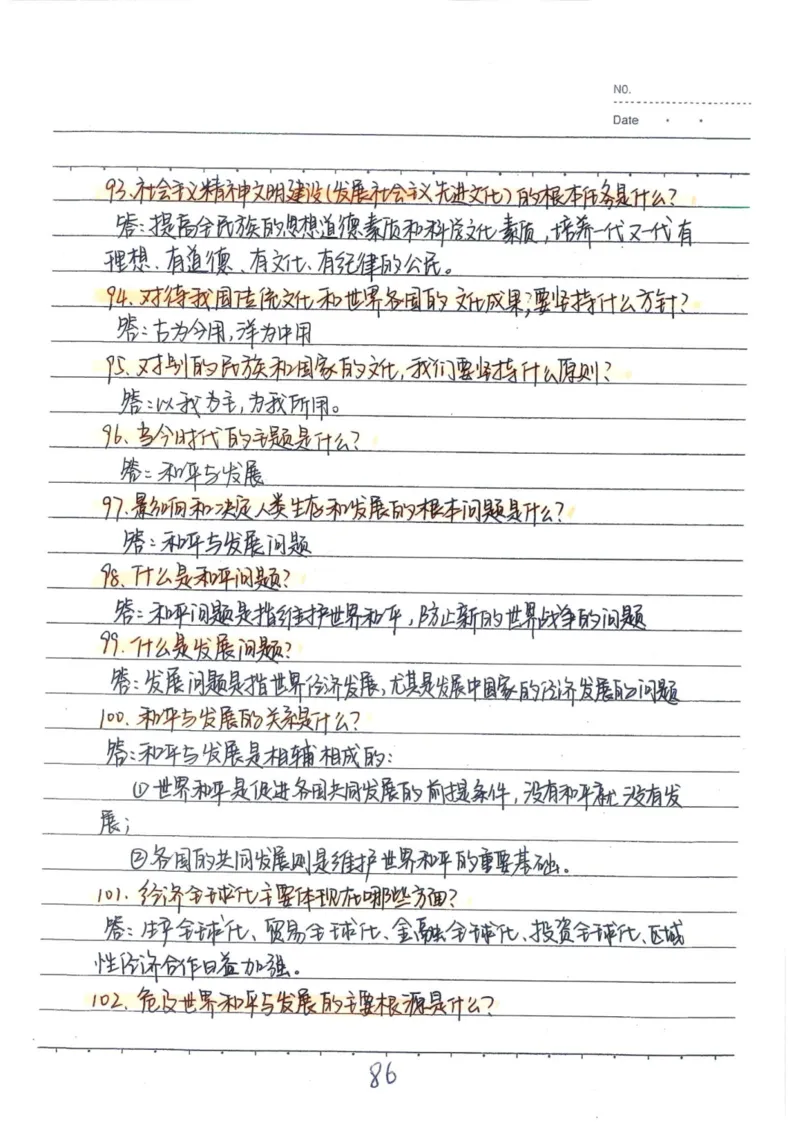 NO.
Date
93.社会主义精神文明建设(发展社会主义先进文化)的根本任务是什么?
答:提高全民族的思想道德素质和科学文化素质,培养一代又一代有
理想、有道德、有文化、有纪律的公民。
94.对待我国传统文化和世界各国的文化成果,要坚持什么方针?
答:古为今用,洋为中用
95.对别的民族和国家的文化,我们要坚持什么原则?
答:以我为主,为我所用。
96.当今时代的主题是什么?
答:和平与发展
97.影响和决定人类生存和发展的根本问题是什么?
答:和平与发展问题
98.什么是和平问题?
答:和平问题是指维护世界和平,防止新的世界战争的问题
99.什么是发展问题?
答:发展问题是指世界经济发展,尤其是发展中国家的经济发展的问题
100.和平与发展的关系是什么?
答:和平与发展是相辅相成的:
①世界和平是促进各国共同发展的前提条件,没有和平就没有发
展;
②各国的共同发展则是维护世界和平的重要基础。
101.经济全球化主要体现在哪些方面?
答:生产全球化、贸易全球化、金融全球化、投资全球化、区域
性经济合作日益加强。
102.危及世界和平与发展的主要根源是什么?
86